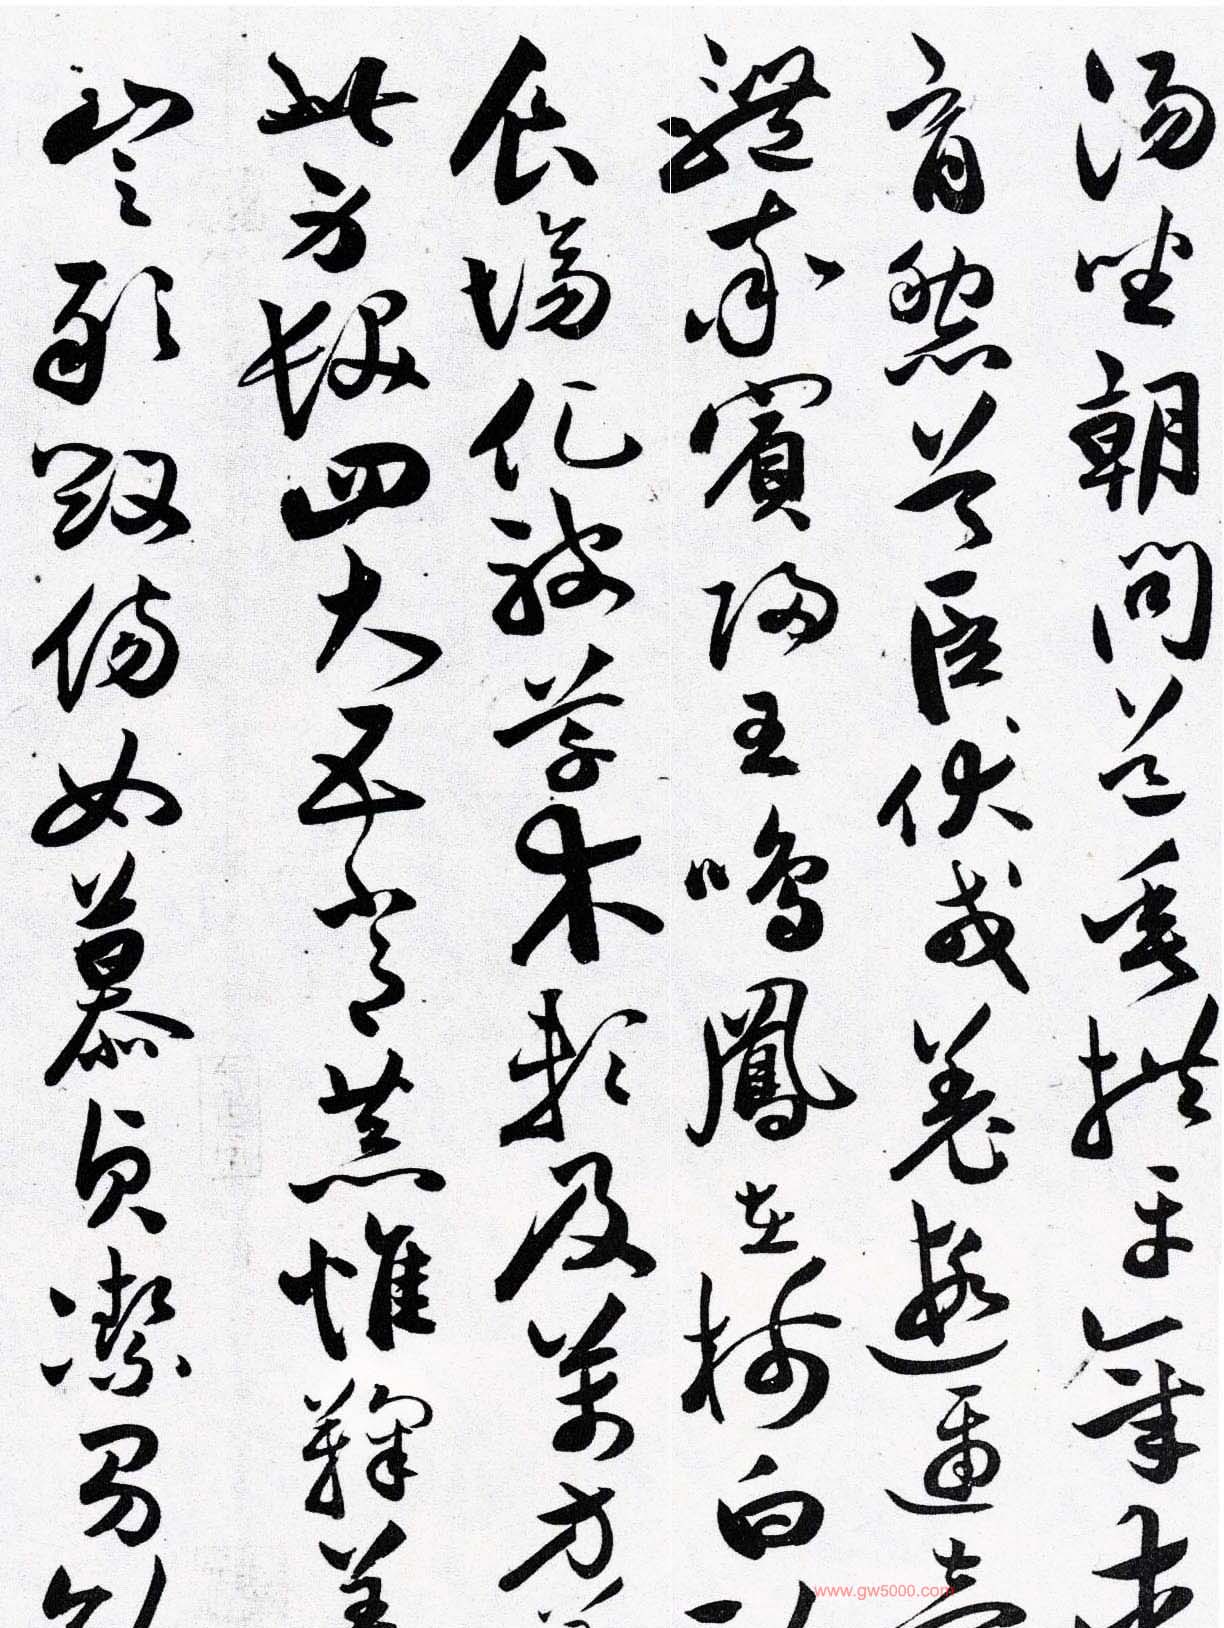 湯坐朝問道垂拱平章
育黎首臣伏戎羌遐邇壹
體率賓歸王鳴鳳在樹白
食場化被草木賴及萬方
此身髮四大五常恭惟鞠養
豈敢毀傷女慕貞潔男
www.gw5000.com